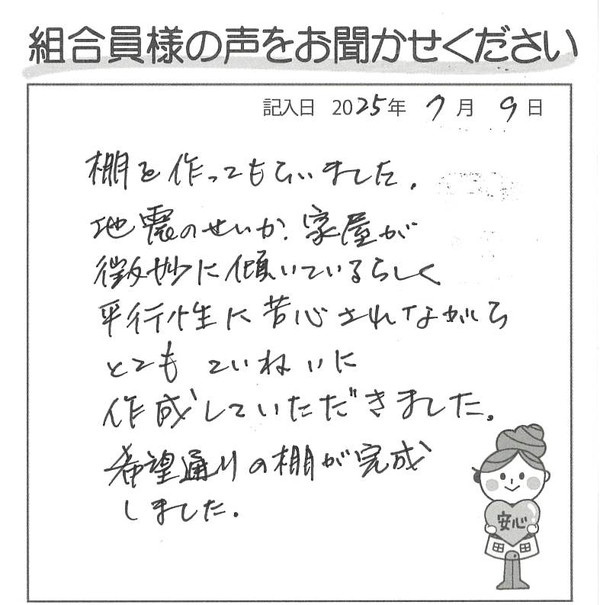 組合員様の声をお聞かせください
記入日 2025年 7月 9日
棚を作ってもらいました。
地震のせいか、家屋が
微妙に傾いているらしく
平行性に苦心されながら
とても ていねいに
作成していただきました。
希望通りの棚が完成
しました。
安心